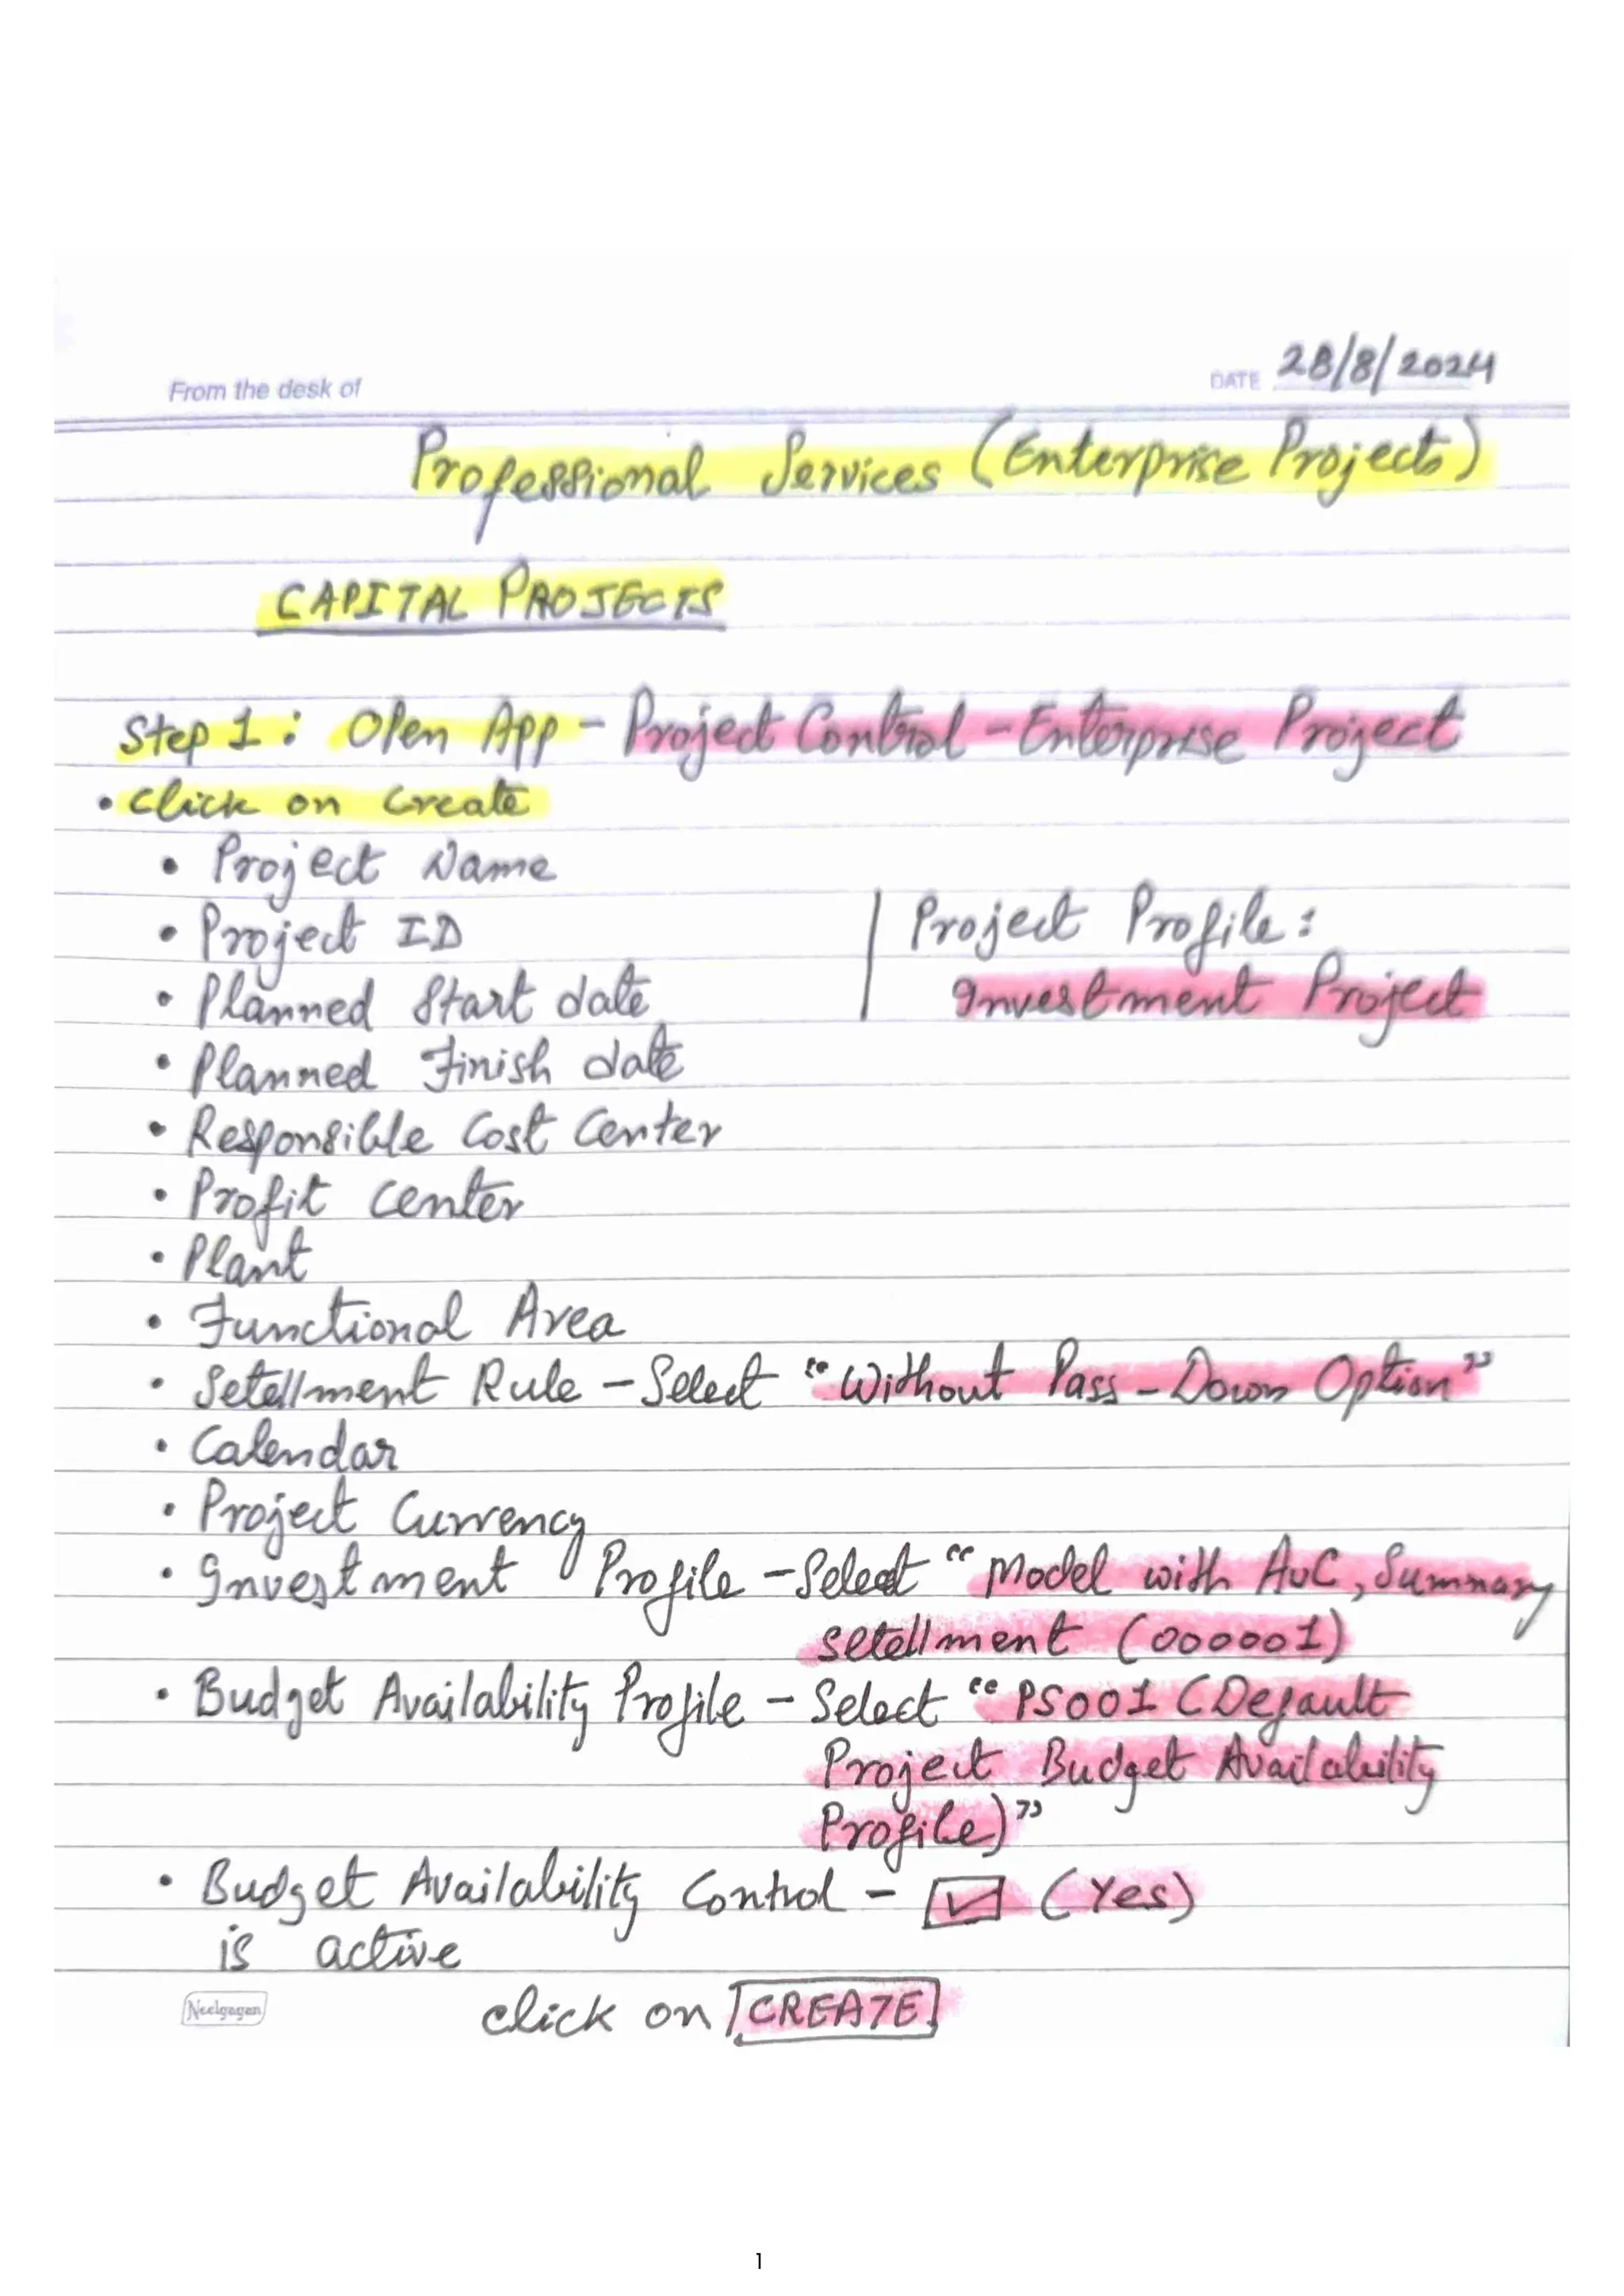 From the desk of
DATE 28/8/2024
Professional Services (Enterprise Projects)
CAPITAL PROJECTS
Step 1: Open App - Project Control - Enterprise Project
• Click on Create
• Project Name
• Project ID
Project Profile:
• Planned Start date
Investment Project
• Planned Finish date
• Responsible Cost Center
• Profit Center
• Plant
• Functional Area
• Setellment Rule - Select "Without Pass-Down Option"
• Calendar
• Project Currency
• Investment Profile - Select "Model with AuC, Summary
Setellment (000001)
• Budget Availability Profile - Select "PS001 (Default
Project Budget Availability
Profile)"
• Budget Availability Control - ☑ (Yes)
is active
Neelgagan
click on CREATE
1